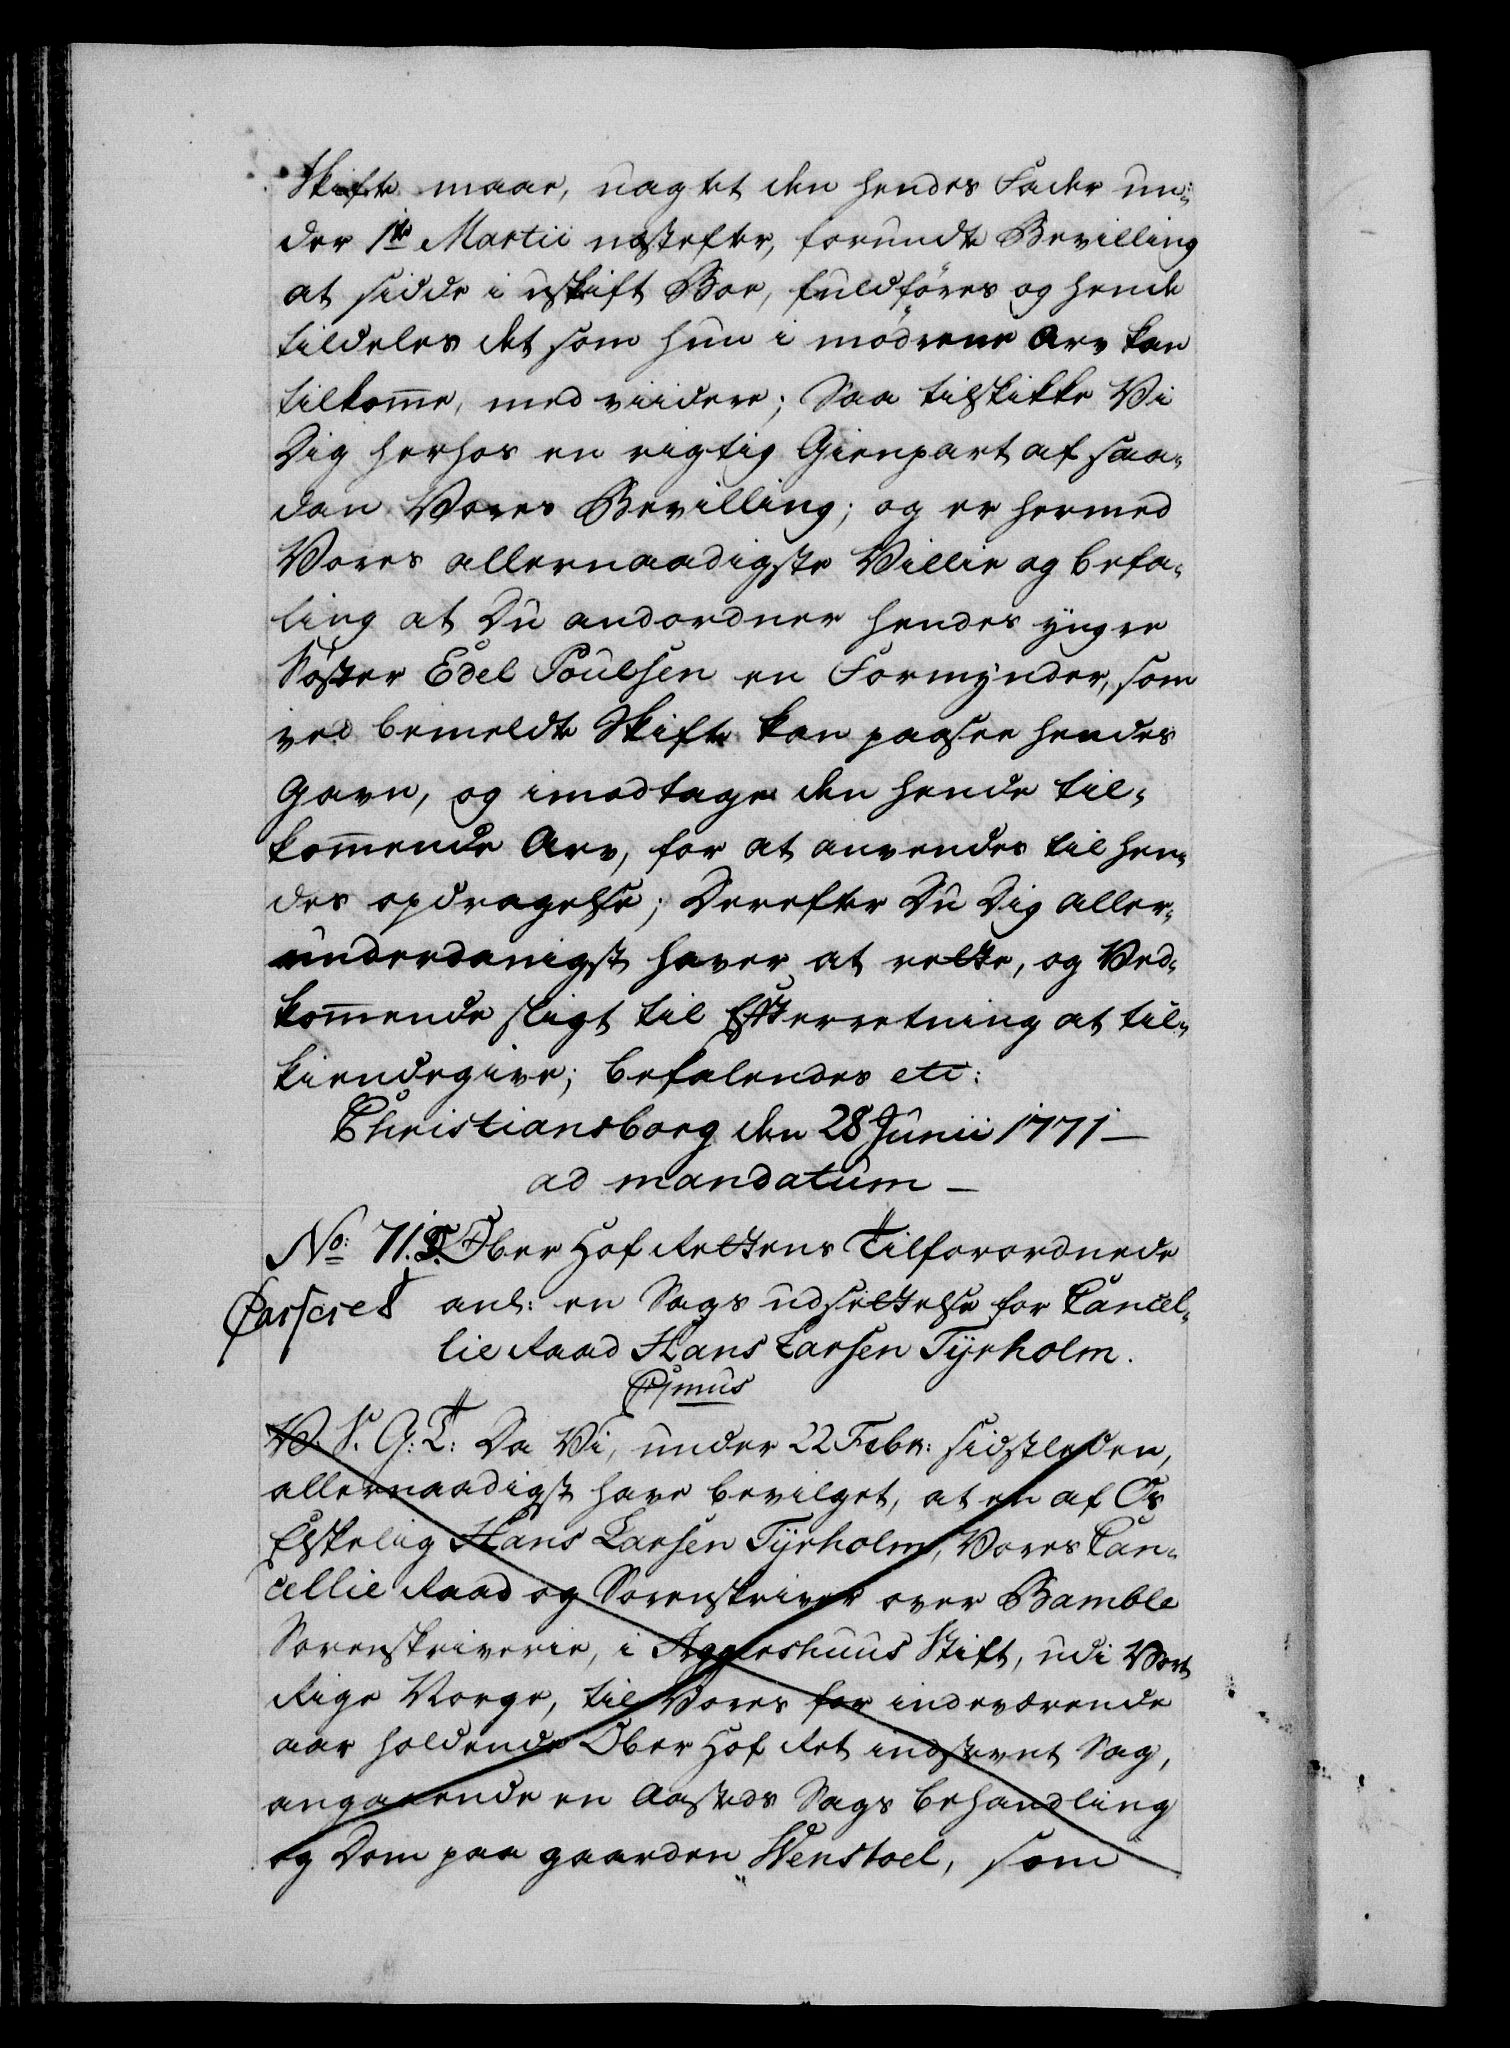 Skifte maae, uagtet den hendes Fader un-
der 1te Martii næstefter, forundte Bevilling
at sidde i uskift Boe, fuldføres og hende
tildeles det som hun i mødrene Arv kan
tilkomme, med viidere; Saa tilskikke Vi
Dig herhos en rigtig Gienpart af saa-
dan Vores Bevilling; og er hermed
Vores allernaadigste Villie og befa-
ling at Du andordner hendes yngre
Søster Edel Poulsen en Formynder, som
ved bemeldte Skifte kan paasee hendes
Gavn, og imodtage den hende til-
kommende Arv, for at anvendes til hen-
des opdragelse; Derefter Du Dig aller-
underdanigst haver at rette, og Ved-
kommende sligt til Efterretning at til-
kiendegive; befalendes etc:
Christiansborg den 28 Junii 1771 —
ad mandatum —
No: 71. T. Ober Hof Rettens Tilforordnede
Casseret anl: en Sags udsættelse for Cancel-
lie Raad Hans Larsen Tyrholm.
V. S. G: T: Da Vi, under 22 Febr: sidstleden,
allernaadigst have bevilget, at en af Os
Elskelig Hans Larsen Tyrholm, Vores Can-
cellie Raad og Sorenskriver over Bamble
Sorenskriverie, i Aggershuus Stift, udi Vort
Rige Norge, til Vores for indeværende
aar holdende Ober Hof Ret indstevnt Sag,
angaaende en Aasteds Sags behandling
og Dom paa gaarden Wenstoel, som